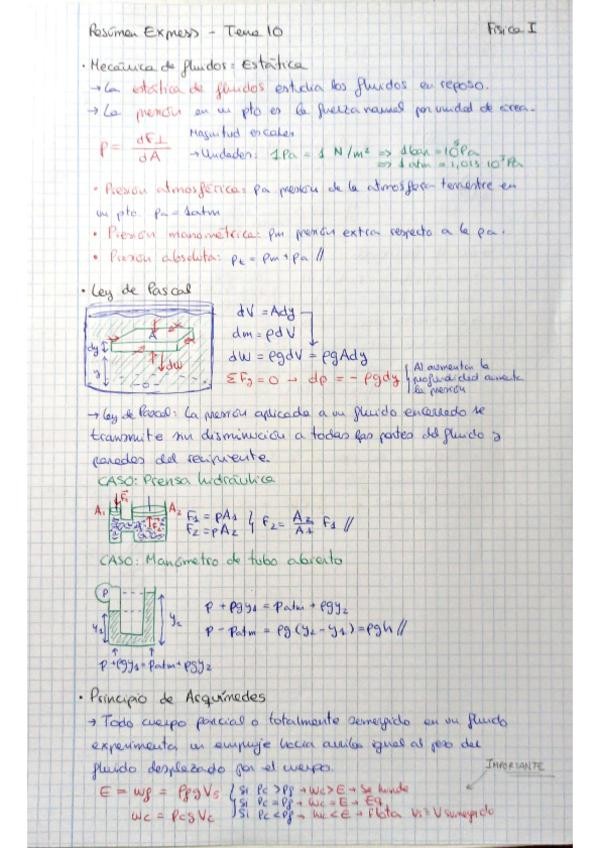 Resumen Express - Tema 10
Física I
· Mecánica de fluidos: Estática
→ La estática de fluidos estudia los fluidos en reposo.
→ La presión en un pto es la fuerza normal por unidad de área.
P = dF⊥/dA
Magnitud escalar
→ Unidades: 1Pa = 1 N/m² ⇒ 1bar = 10⁵Pa
⇒ 1atm = 1,013 10⁵Pa
• Presión atmosférica: pa presión de la atmósfera terrestre en
un pto. pa = 1atm
• Presión manométrica: pm presión extra respecto a la pa.
• Presión absoluta: pt = pm + pa //
· Ley de Pascal
dV = Ady
dm = ρdV
dw = ρgdV = ρgAdy
ΣFy = 0 → dp = - ρgdy
Al aumentar la
profundidad aumenta
la presión
A
dy
dw
y
0
→ Ley de Pascal: La presión aplicada a un fluido encerrado se
transmite sin disminución a todas las partes del fluido y
paredes del recipiente.
CASO: Prensa hidráulica
A1
F1
A2
F2
F1 = pA1
F2 = pA2
F2 = A2/A1 F1 //
CASO: Manómetro de tubo abierto
P
y1
y2
P + ρgy1 = Patm + ρgy2
P - Patm = ρg (y2 - y1) = ρgh //
P + ρgy1 = Patm + ρgy2
· Principio de Arquímedes
→ Todo cuerpo parcial o totalmente sumergido en un fluido
experimenta un empuje hacia arriba igual al peso del
fluido desplazado por el cuerpo.
IMPORTANTE
E = wf = ρfgVs
Si ρc > ρf → wc > E → Se hunde
Si ρc = ρf → wc = E → Eq
wc = ρcgVc
Si ρc < ρf → wc < E → Flota Vs = Vsumergido